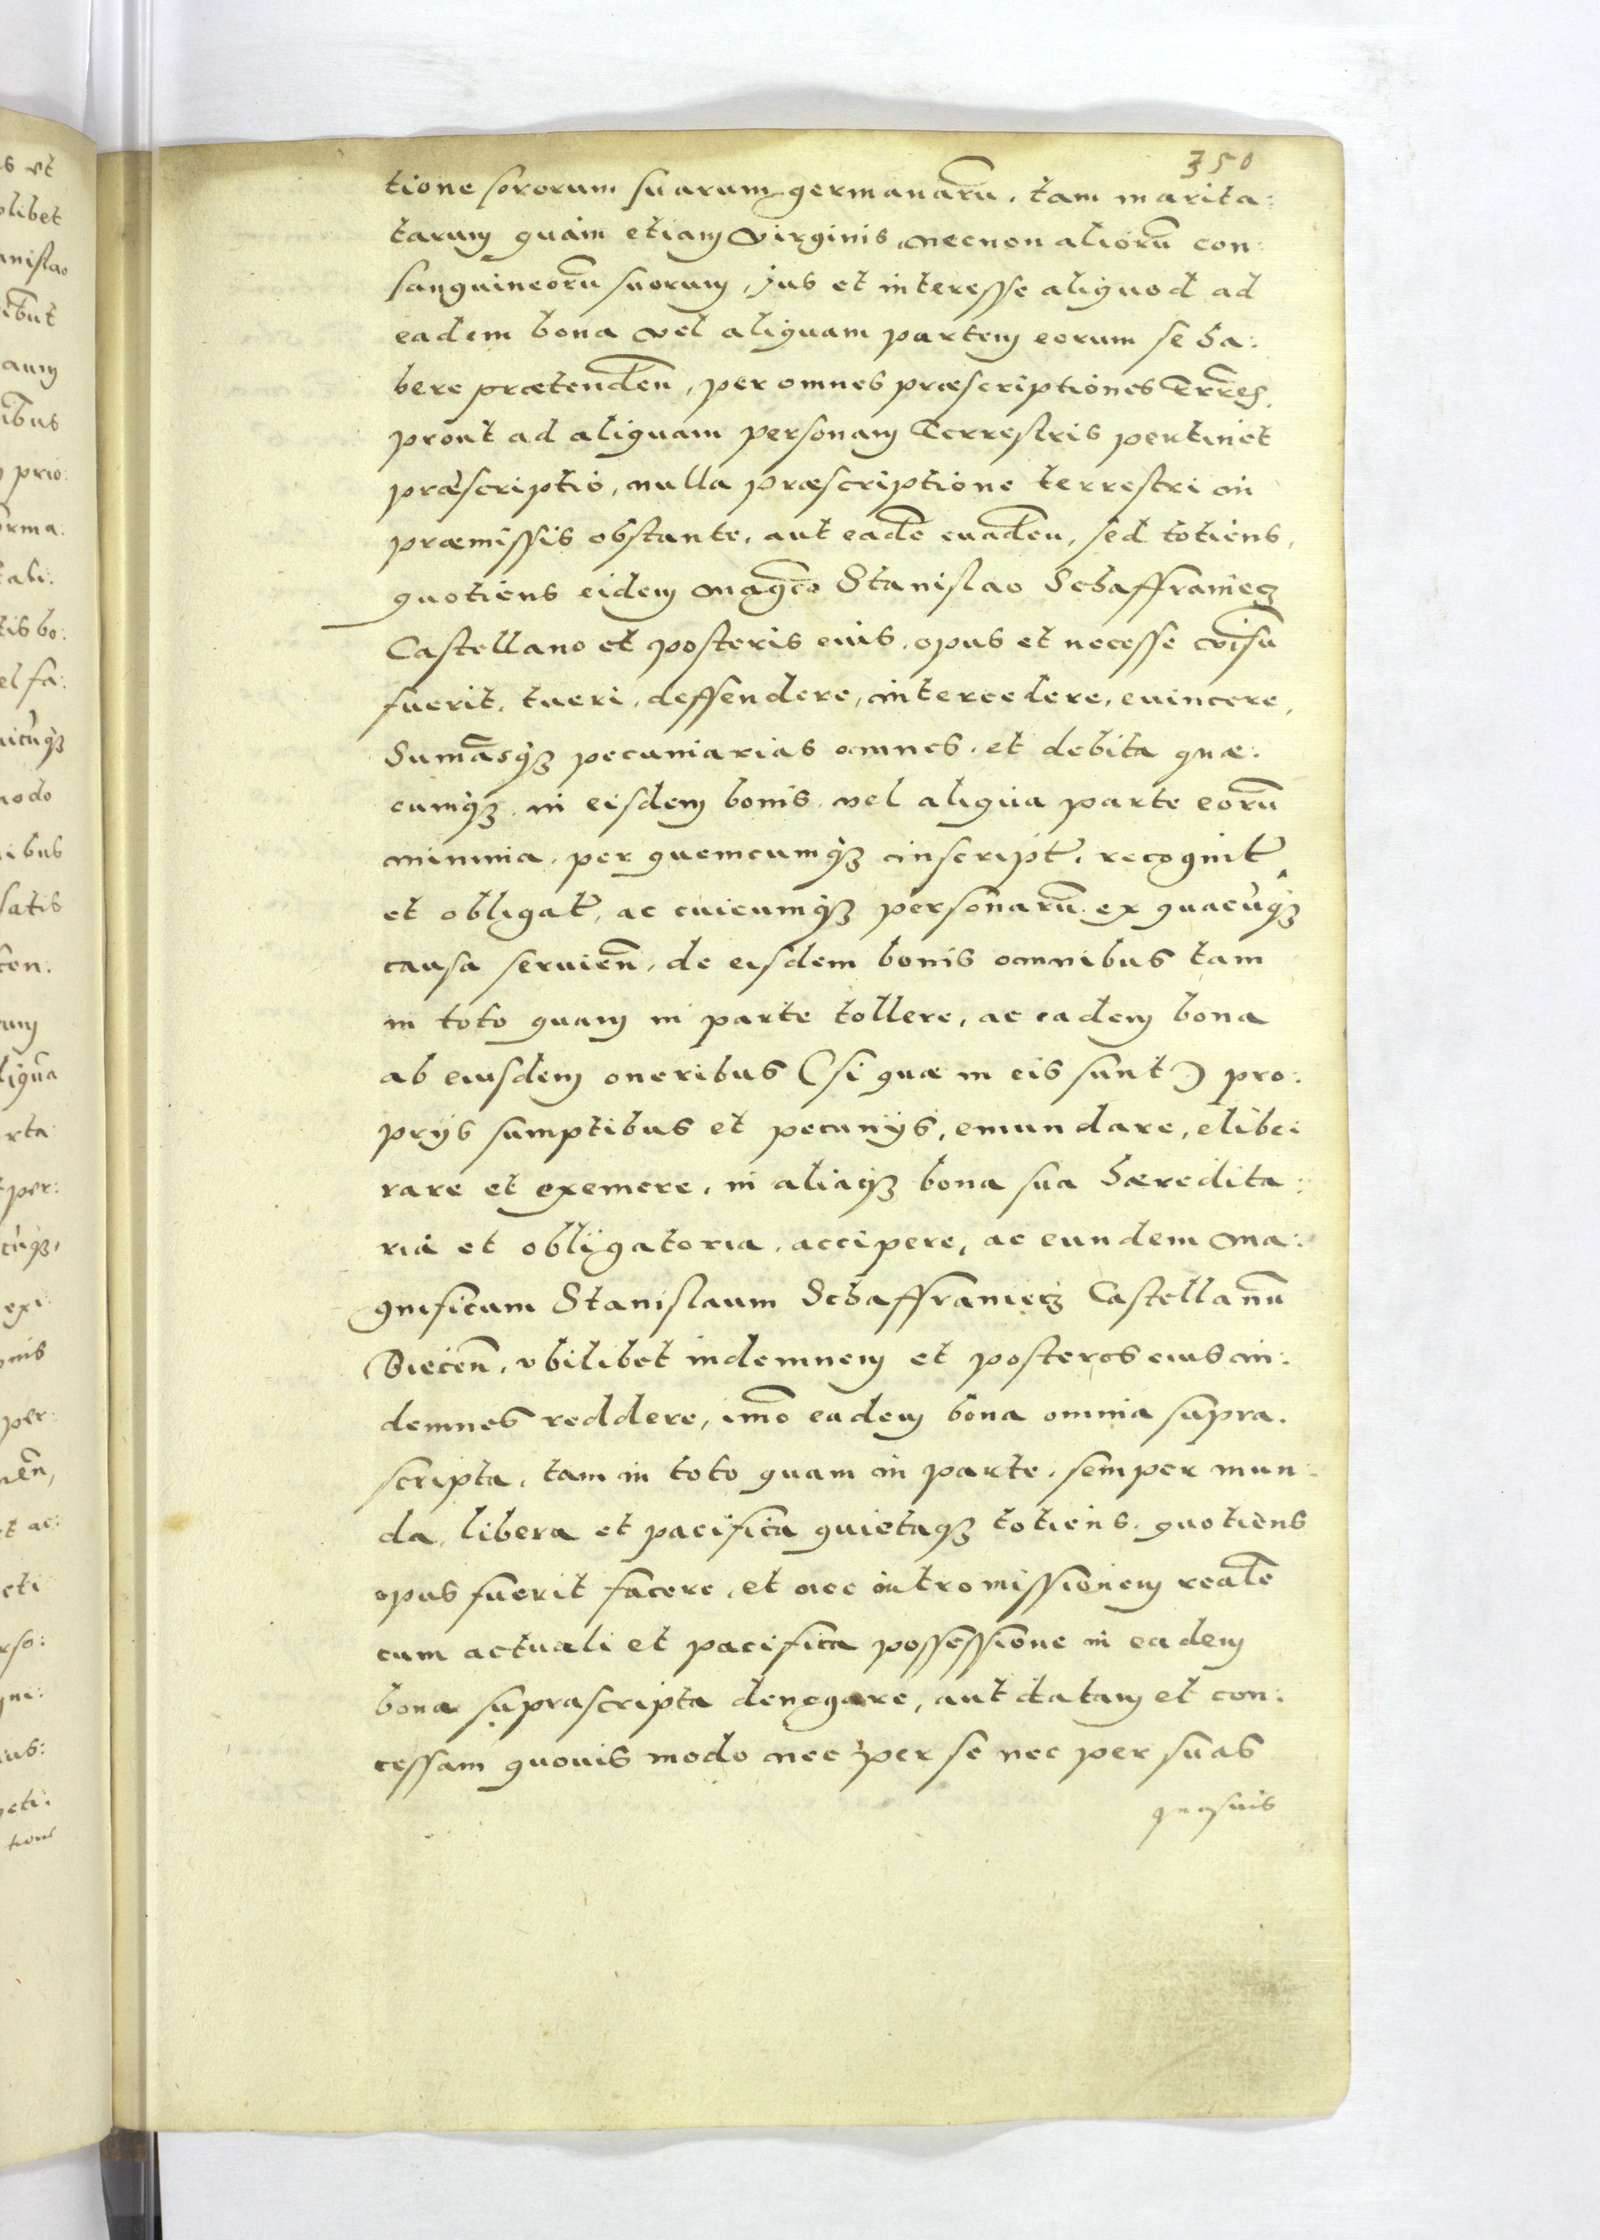 350
tione sororum suarum germanarū, tam marita:
tarum quàm etiam virginis, necnon aliorū con:
sanguineorū suorum, jus et interesse aliquod ad
eadem bona vel aliquam partem eorum se ha:
bere prætendeñ, per omnes præscriptiones
prout ad aliquam personam Terrestris pertinet
præscriptio, nulla præscriptione terrestri in
præmissis obstante, aut eadē euadeñ, sed totiens,
quotiens eidem Magco Stanislao Schaffraniecz
Castellano et posteris eius, opus et necesse visū
fuerit, tueri, deffendere, intercedere, euincere,
Sumāsq3 pecuniarias omnes, et debita quæ:
cumq3 in eisdem bonis, vel aliqua parte eorū
minima, per quemcumq3 inscript, recognit
et obligat, ac cuicumq3 personarū ex quacūq3
causa seruieñ, de eisdem bonis omnibus tam
in toto quam in parte tollere, ac eadem bona
ab eiusdem oneribus (si quæ in eis sunt) pro:
prijs sumptibus et pecunijs, emundare, elibe:
rare et eximere, in aliaq3 bona sua hæredita:
ria et obligatoria, accipere, ac eundem Ma:
gnificum Stanislaum Schaffraniecz Castellanū
Bieceñ, vbilibet indemnem et posteros eius in:
demnes reddere, imō eadem bona omnia supra.
scripta, tam in toto quam in parte, semper mun:
da, libera et pacifica quietaq3 totiens, quotiens
opus fuerit facere, et nec intromissionem realē
cum actuali et pacifica possessione in eadem
bona suprascripta denegare, aut datam et con:
cessam quouis modo nec per se nec per suas